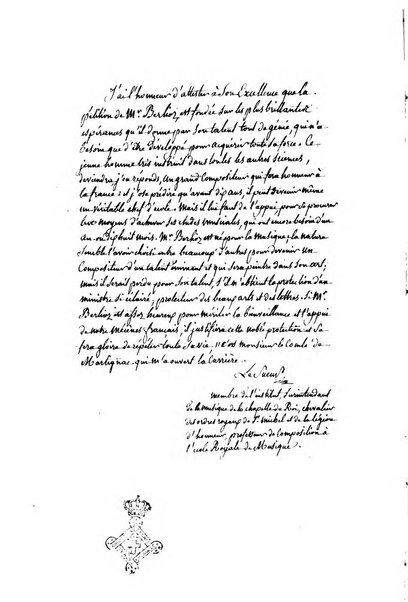 J'ai l'honneur d'attester à Son Excellence que la
pétition de Mr. Berlioz est fondée sur les plus brillantes
espérances qu'il donne par son talent tout de génie, qui n'a
besoin que d'être développé pour acquérir toute sa force. Ce
jeune homme très instruit dans toutes les autres sciences,
deviendra j'en réponds, un grand Compositeur qui fera honneur à
la france : et j'ose prédire qu'avant dix ans, il peut devenir même
un véritable chef d'école. Mais il lui faut de l'appui, pour se procurer
les moyens d'achever ses études musicales, qui ont encore besoin d'un
an ou dixhuit mois. Mr. Berlioz est né pour la musique ; la nature
semble l'avoir choisi entre beaucoup d'autres pour devenir un
Compositeur d'un talent éminent et qui sera peintre dans son art ;
mais il serait perdu pour son talent, s'il n'obtient la protection d'un
ministre si éclairé, protecteur des beaux arts et des lettres. Si Mr.
Berlioz est assez heureux pour mériter la bienveillance et l'appui
de notre mécènes français, il justifiera cette noble protection et se
fera gloire de répéter toute sa vie : c'est monsieur le Comte de
Martignac qui m'a ouvert la Carrière.
Le Sueur
membre de l'institut, surintendant
de la musique de la chapelle du Roi, chevalier
des ordres royaux de St. michel et de la légion
d'honneur, professeur de Composition à
l'école Royale de Musique.